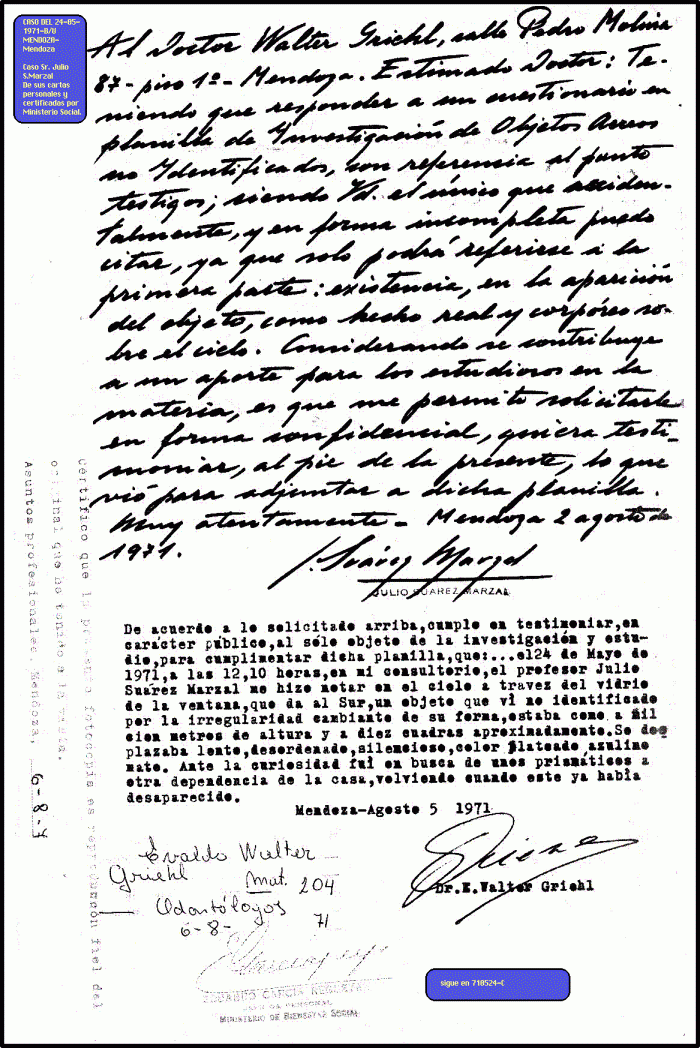 CASO DEL 24-05-
1971-B/U
MENDOZA-
Mendoza
Caso Sr. Julio
S.Marzal
De sus cartas
personales y
certificadas por
Ministerio Social.
Al Doctor Walter Griehl, calle Pedro Molina
87- piso 1º- Mendoza. Estimado Doctor: Te-
niendo que responder a un cuestionario en
planilla de Investigación de Objetos Aereos
no Identificados, con referencia al punto
testigos; siendo Vd. el único que acciden-
talmente, y en forma incompleta puedo
citar, ya que solo podrá referirse a la
primera parte: existencia, en la aparición
del objeto, como hecho real y corpóreo so-
bre el cielo. Considerando se contribuye
a un aporte para los estudiosos en la
materia, es que me permito solicitarle
en forma confidencial, quiera testi-
moniar, al pie de la presente, lo que
vió para adjuntar a dicha planilla.
Muy atentamente - Mendoza 2 agosto de
1971.
J. Suárez Marzal
JULIO SUAREZ MARZAL
De acuerdo a lo solicitado arriba,cumplo en testimoniar,en
carácter público,al sólo objeto de la investigación y estu-
dio,para cumplimentar dicha planilla,que:...el24 de Mayo de
1971,a las 12,10 horas,en mi consultorio,el profesor Julio
Suárez Marzal me hizo notar en el cielo a travez del vidrio
de la ventana,que da al Sur,un objeto que vi no identificado
por la irregularidad cambiante de su forma,estaba como a mil
cien metros de altura y a diez cuadras aproximadamente.Se des
plazaba lento,desordenado,silencioso,color plateado,azulino
mate. Ante la curiosidad fuí en busca de unos prismáticos a
otra dependencia de la casa,volviendo cuando este ya había
desaparecido.
Mendoza-Agosto 5 1971
Dr.E.Walter Griehl
Evaldo Walter
Griehl Mat. 204
Odontólogos
6-8- 71
EDUARDO GARCIA
JEFE DE PERSONAL
MINISTERIO DE BIENESTAR SOCIAL
Certifico que la presente fotocopia es reproducción fiel del
original que he tenido a la vista.
Asuntos profesionales. Mendoza, 6-8-7
sigue en 710524-C